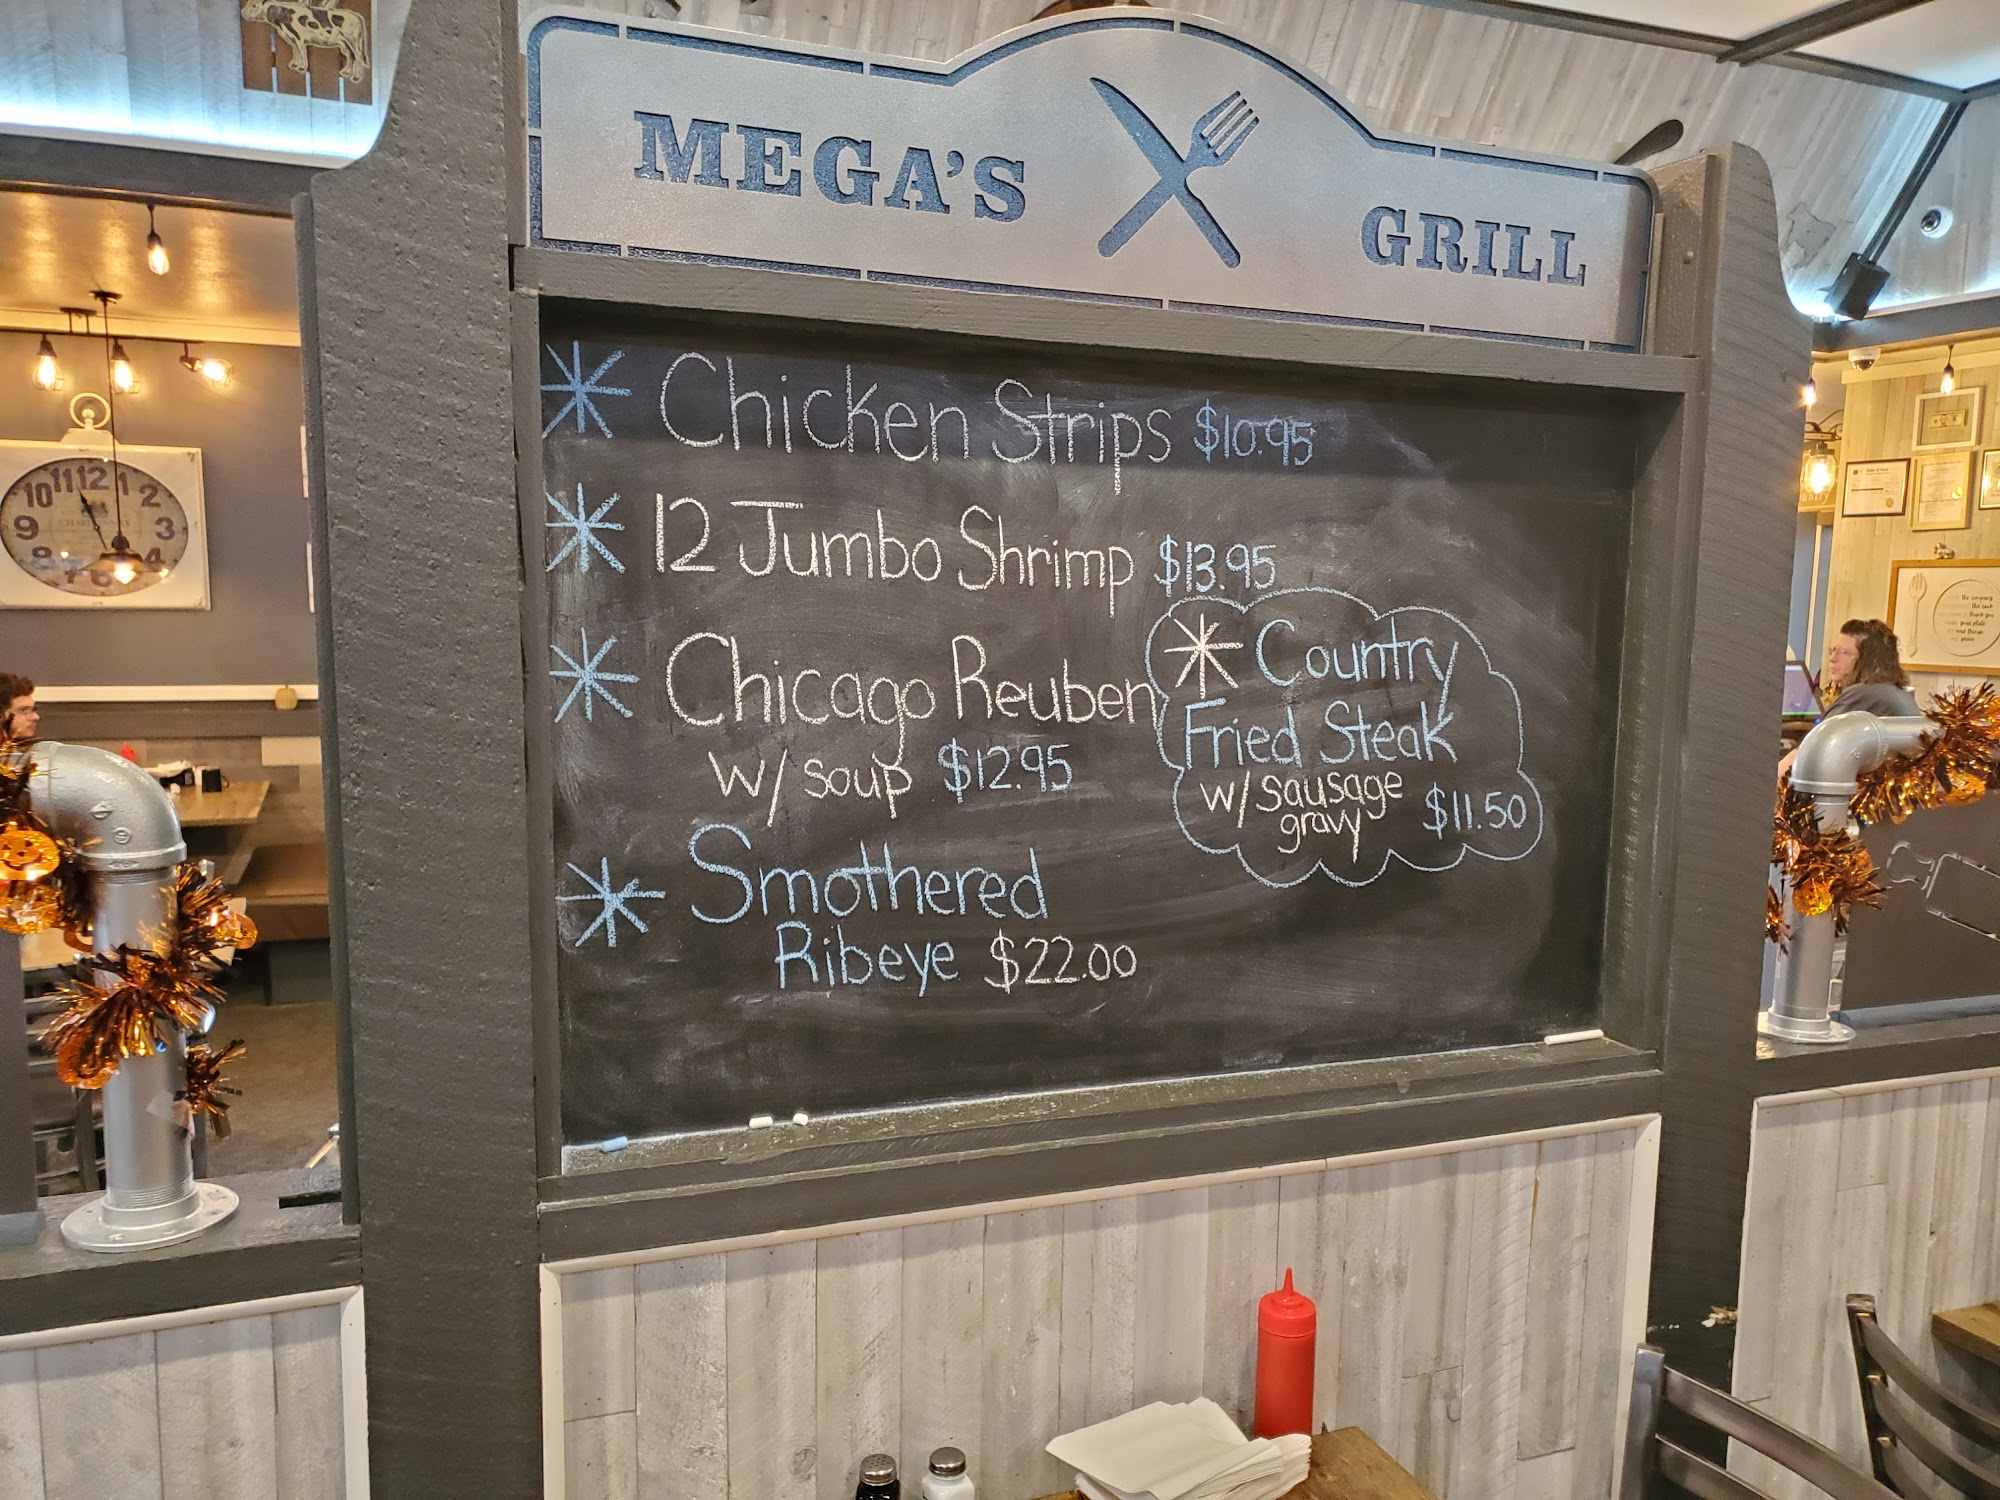 MEGA'S GRILL
* Chicken Strips $10.95
* 12 Jumbo Shrimp $13.95
* Chicago Reuben
w/ soup $12.95
* Country
Fried Steak
w/ sausage
gravy $11.50
* Smothered
Ribeye $22.00
11 12 1
10 2
9 3
8 4
7 6